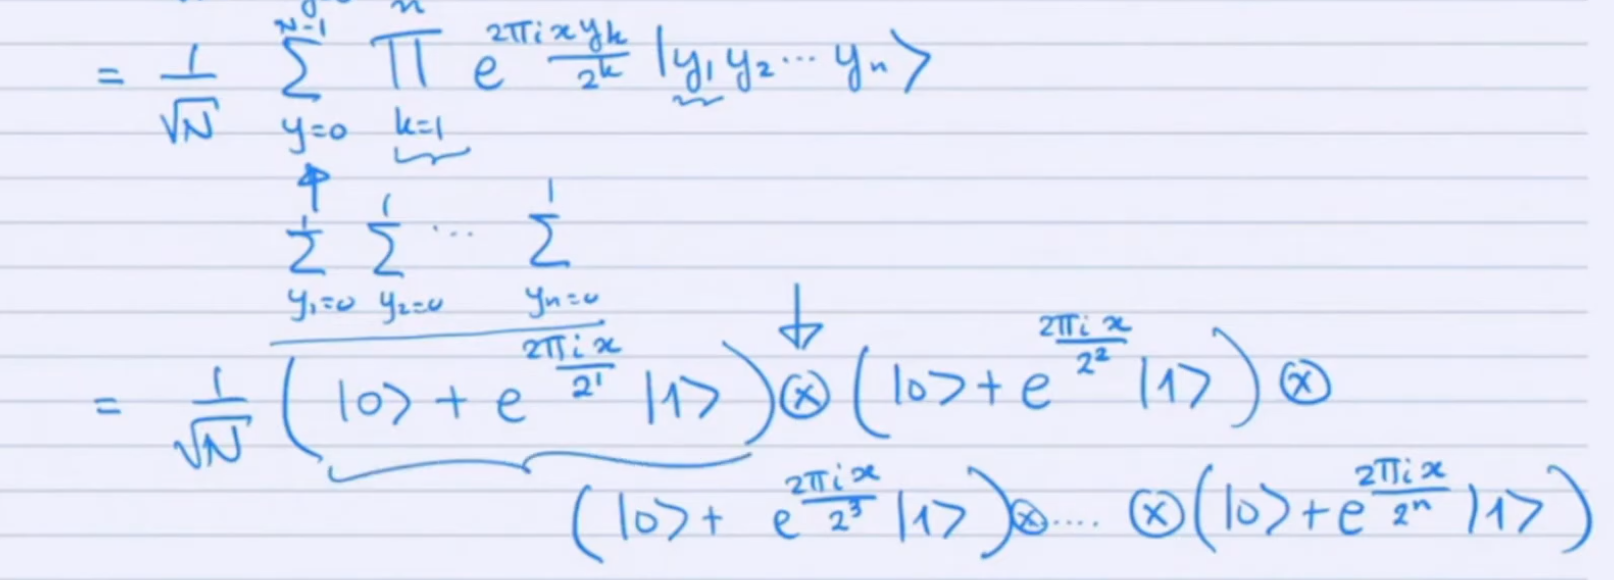 = 1/√N ∑_{y=0}^{N-1} ∏_{k=1}^{n} e^{2πi x y_k/2^k} |y_1 y_2 ... y_n⟩
∑_{y_1=0}^{1} ∑_{y_2=0}^{1} ... ∑_{y_n=0}^{1}
= 1/√N (|0⟩ + e^{2πi x/2^1} |1⟩) ⊗ (|0⟩ + e^{2πi x/2^2} |1⟩) ⊗
(|0⟩ + e^{2πi x/2^3} |1⟩) ⊗ .... ⊗ (|0⟩ + e^{2πi x/2^n} |1⟩)